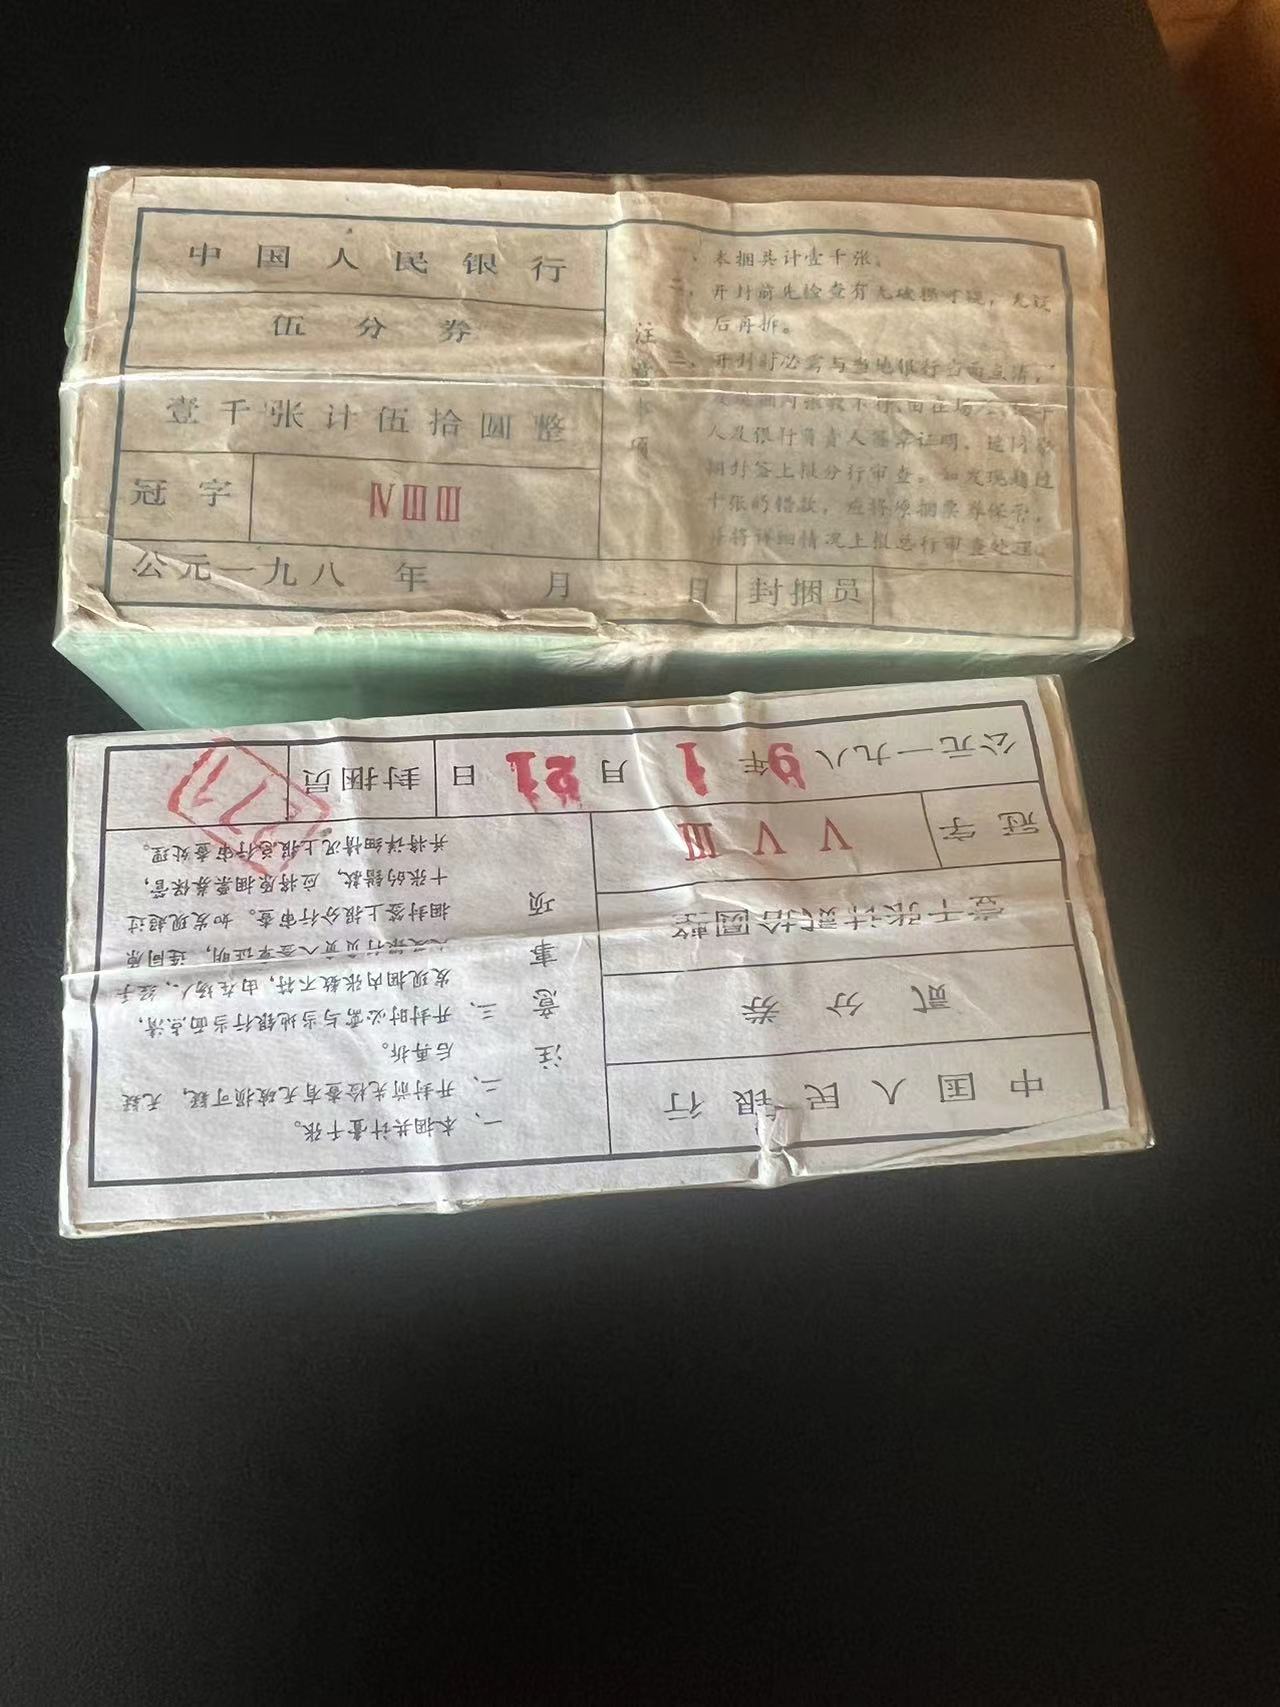 中国人民银行
伍分券
壹千张计伍拾圆整
冠字 ⅣⅢⅢ
公元一九八 年 月 日 封捆员
注意事项
一、本捆共计壹千张。
二、开封前先检查有无破损可疑，无疑
后再拆。
三、开封时必需与当地银行当面点清，
发现捆内张数不符，由在场人、经手
人及银行负责人签章证明，连同原
捆封签上报分行审查。如发现超过
十张的错款，应将原捆票券保管，
并将详细情况上报总行审查处理。
中国人民银行
贰分券
壹千张计贰拾圆整
冠字 ⅤⅤⅢ
公元一九八9年1月21日 封捆员
注意事项
一、本捆共计壹千张。
二、开封前先检查有无破损可疑，无疑
后再拆。
三、开封时必需与当地银行当面点清，
发现捆内张数不符，由在场人、经手
人及银行负责人签章证明，连同原
捆封签上报分行审查。如发现超过
十张的错款，应将原捆票券保管，
并将详细情况上报总行审查处理。